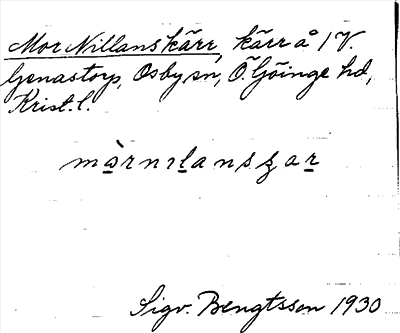 Mor Nillans kärr, kärr å 1 V.
Genastorp, Osby sn, Ö. Göinge hd,
Krist. l.
màrnılansʒar
Sigv. Bengtsson 1930